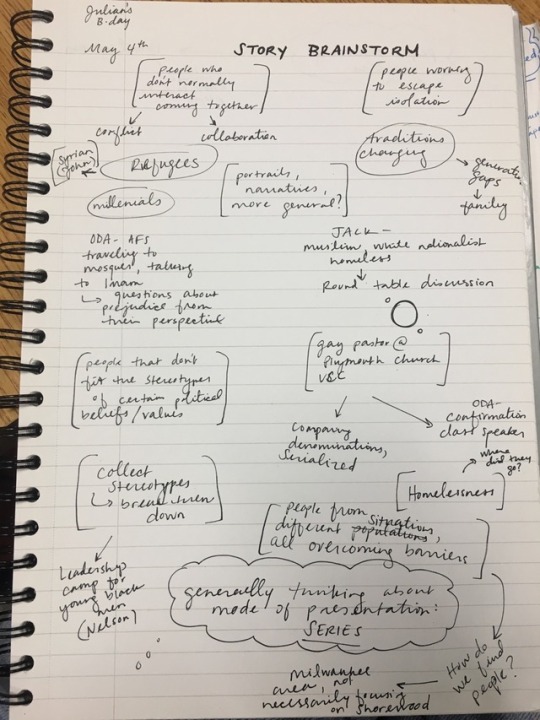 Julian's
B-day
May 4th
STORY BRAINSTORM
people who
don't normally
interact
coming together
conflict
collaboration
people working
to escape
isolation
Syrian
(John)
Refugees
millenials
portraits,
narratives,
more general?
traditions
changing
generation
gaps
family
ODA- AFS
traveling to
mosques, talking
to Imam
questions about
prejudice from
their perspective
JACK -
muslim, white nationalist
homeless
Round table discussion
gay pastor @
Plymouth church
people that don't
fit the stereotypes
of certain political
beliefs/values
Comparing
denominations,
serialized
ODA-
confirmation
class speaker
where
did they
go?
Homelessness
collect
stereotypes
break them
down
Leadership
camp for
young black
men
(Nelson)
people from
different populations situations,
all overcoming barriers
generally thinking about
mode of presentation:
SERIES
How do
we find
people?
Milwaukee
area, not
necessarily focusing
on Shorewood